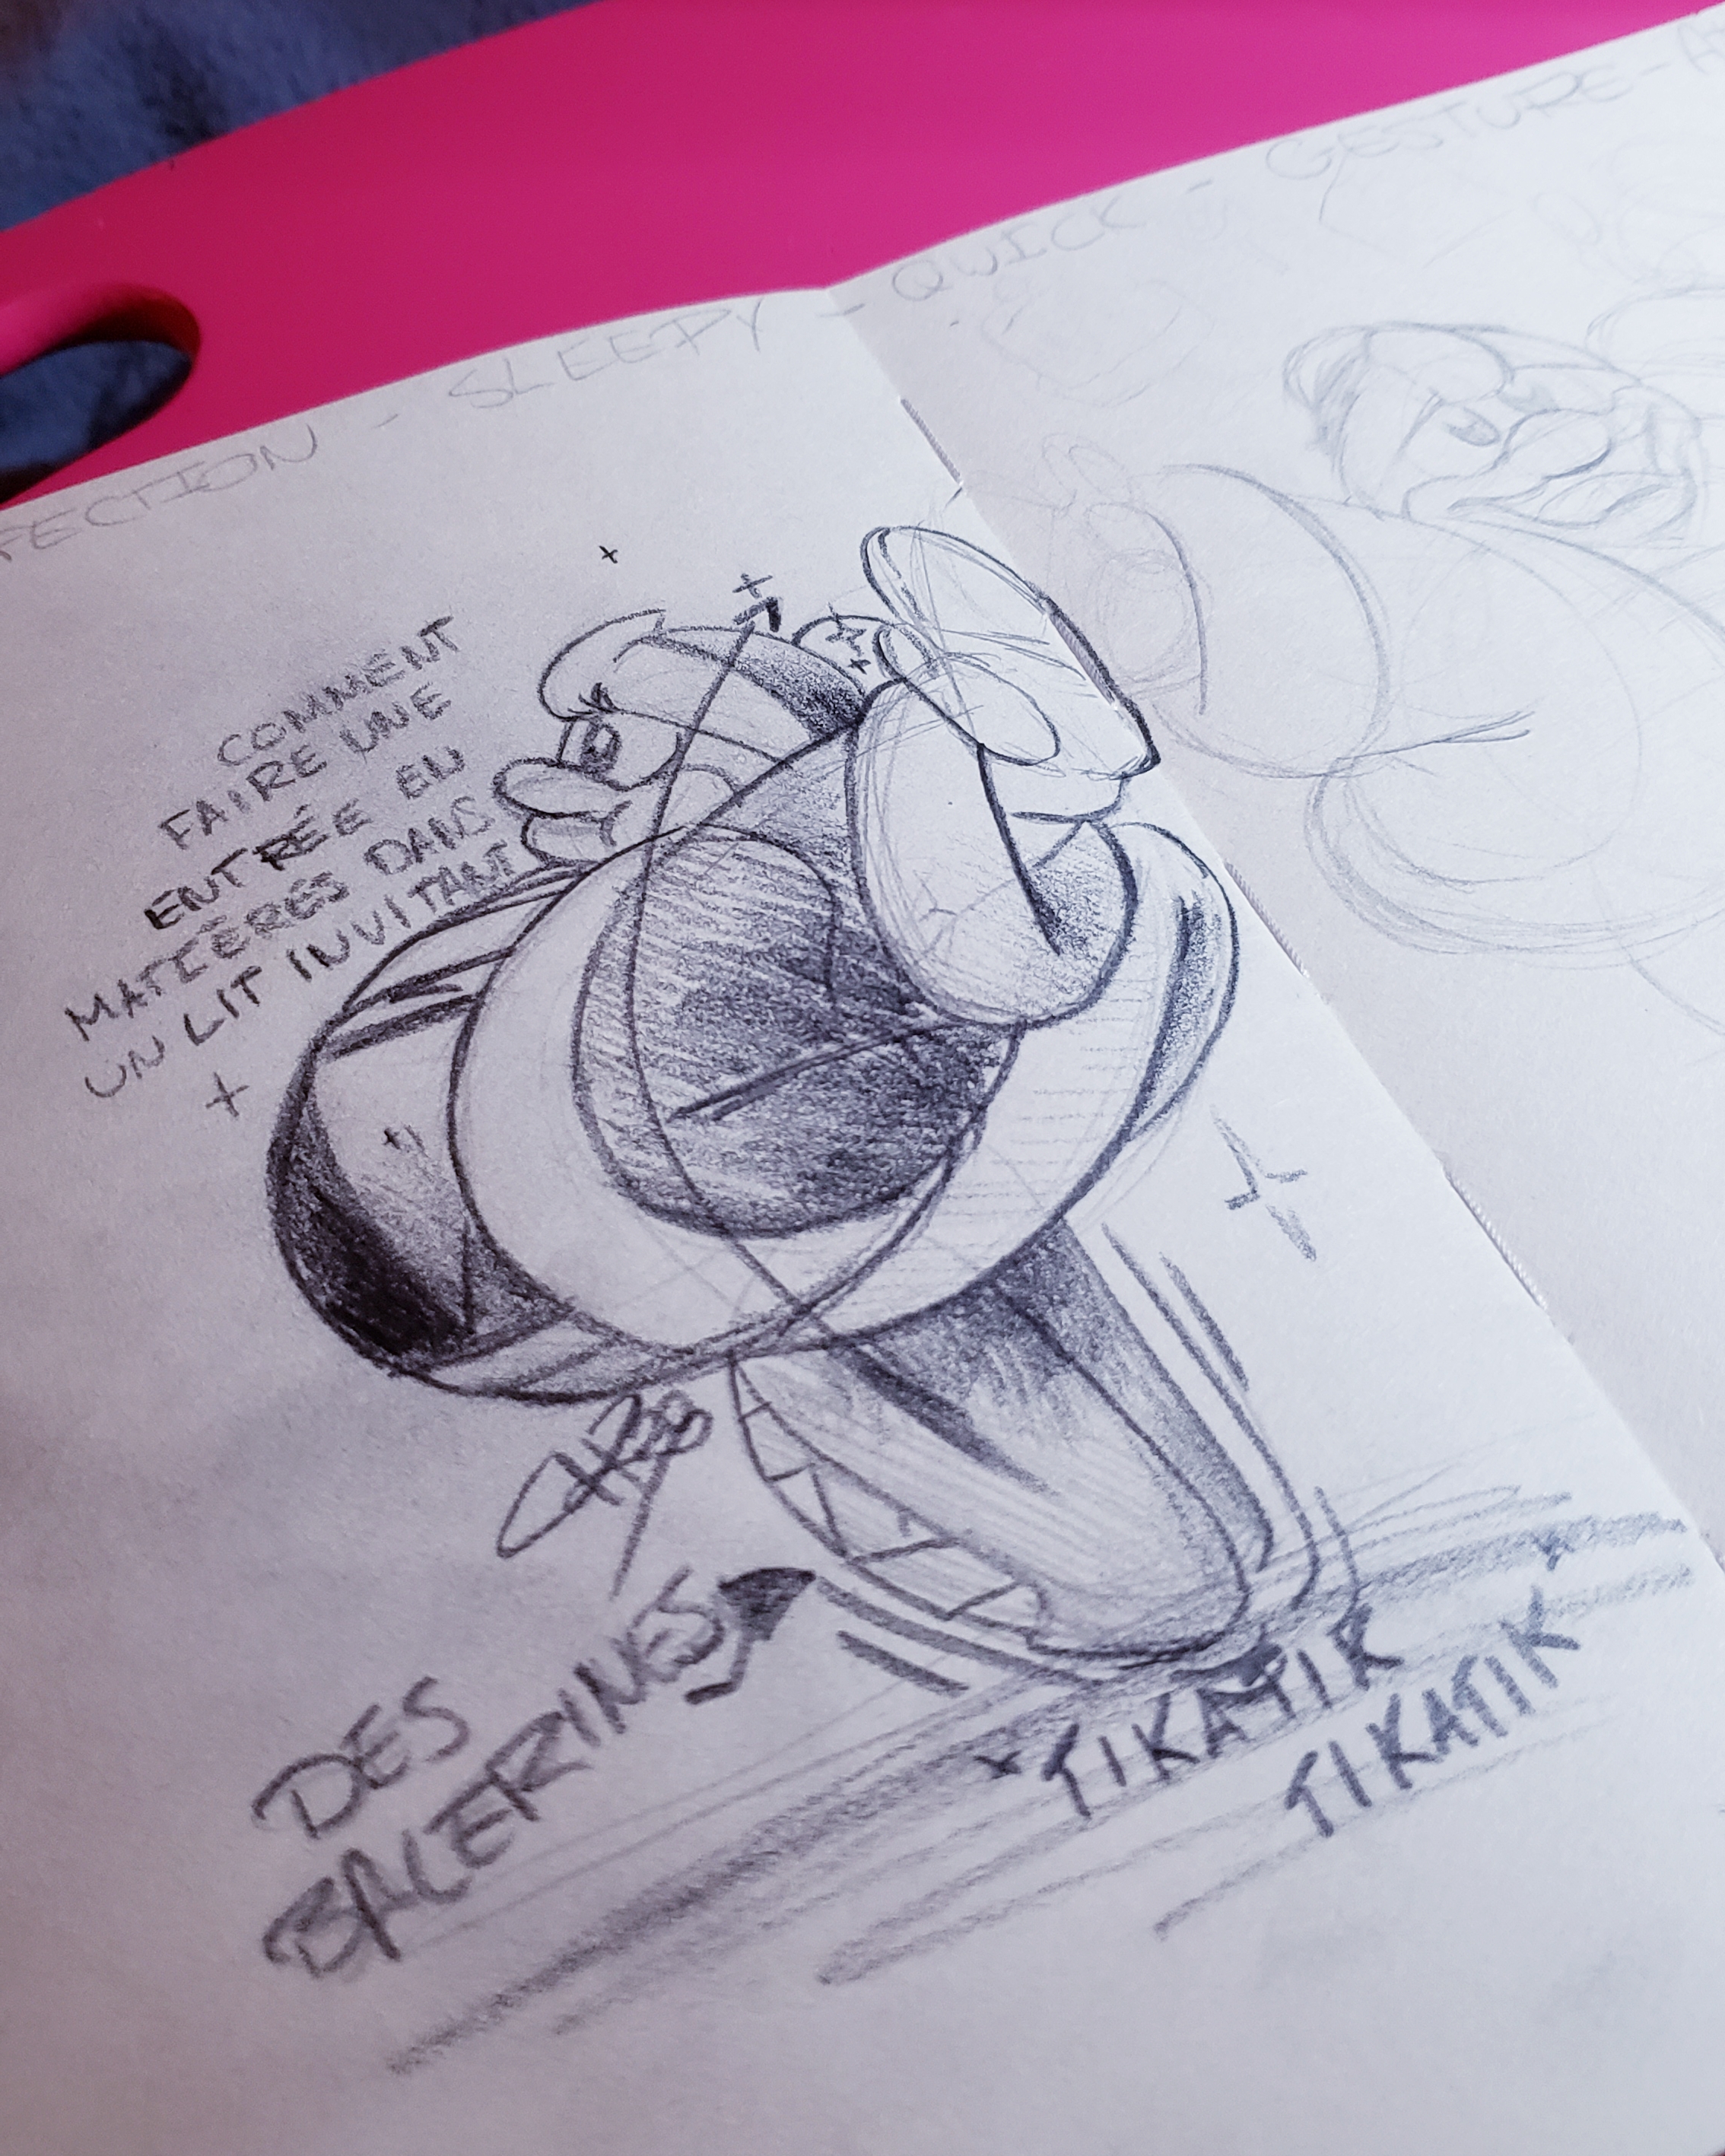 FECTION - SLEEPY - QUICK - GESTURE -
COMMENT
FAIRE UNE
ENTRÉE EN
MATIÈRES DANS
UN LIT INVITANT
DES
BALERINES
TIKATIK
TIKATIK